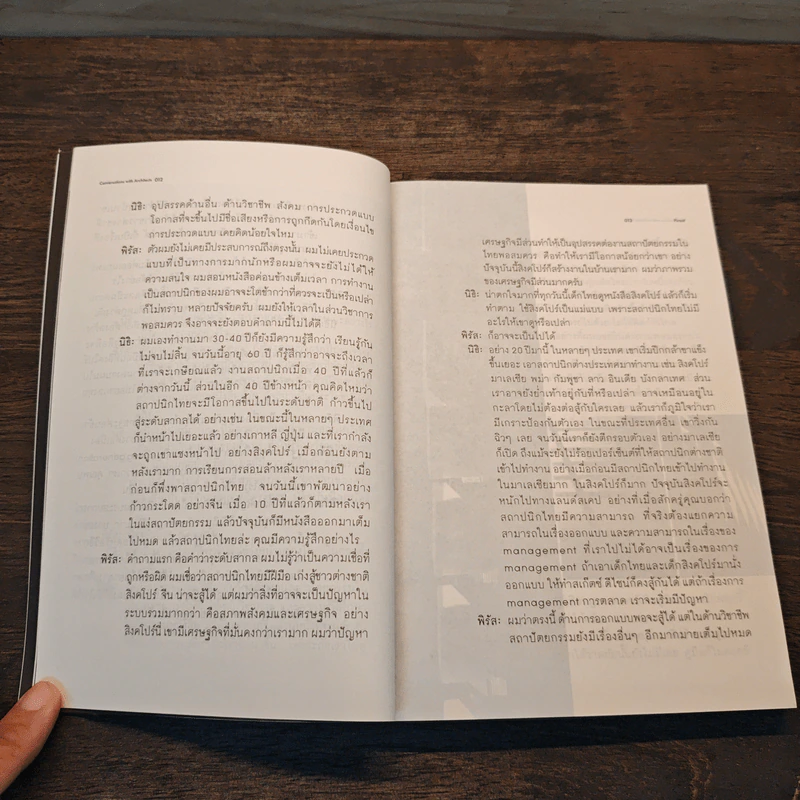 Conversations with Architects 012
นิธิ: อุปสรรคด้านอื่น ด้านวิชาชีพ สังคม การประกวดแบบ
โอกาสที่จะขึ้นไปมีชื่อเสียงหรือการถูกกีดกันโดยเงื่อนไข
การประกวดแบบ เคยคิดน้อยใจไหม
พิรัส: ตัวผมยังไม่เคยมีประสบการณ์ถึงตรงนั้น ผมไม่เคยประกวด
แบบที่เป็นทางการมากนักหรือผมอาจจะยังไม่ได้ให้
ความสนใจ ผมสอนหนังสือค่อนข้างเต็มเวลา การทำงาน
เป็นสถาปนิกของผมอาจจะใดช้ากว่าที่ควรจะเป็นหรือเปล่า
ก็ไม่ทราบ หลายปัจจัยครับ ผมยังให้เวลาในส่วนวิชาการ
พอสมควร จึงอาจจะยังตอบคำถามนี้ไม่ได้ดี
นิธิ: ผมเองทำงานมา 30-40 ปีก็ยังมีความรู้สึกว่า เรียนรู้กัน
ไม่จบไม่สิ้น จนวันนี้อายุ 60 ปี ก็รู้สึกว่าอาจจะถึงเวลา
ที่เราจะเกษียณแล้ว งานสถาปนิกเมื่อ 40 ปีที่แล้วก็
ต่างจากวันนี้ ส่วนในอีก 40 ปีข้างหน้า คุณคิดไหมว่า
สถาปนิกไทยจะมีโอกาสขึ้นไปในระดับชาติ ก้าวขึ้นไป
สู่ระดับสากลได้ อย่างเช่น ในขณะนี้ในหลายๆ ประเทศ
ก็นำหน้าไปเยอะแล้ว อย่างเกาหลี ญี่ปุ่น และที่เรากำลัง
จะถูกเขาแซงหน้าไป อย่างสิงคโปร์ เมื่อก่อนยังตาม
หลังเรามาก การเรียนการสอนล้าหลังเราหลายปี เมื่อ
ก่อนก็พึ่งพาสถาปนิกไทย จนวันนี้เขาพัฒนาอย่าง
ก้าวกระโดด อย่างจีน เมื่อ 10 ปีที่แล้วก็ตามหลังเรา
ในแง่สถาปัตยกรรม แล้วปัจจุบันก็มีหนังสือออกมาเต็ม
ไปหมด แล้วสถาปนิกไทยล่ะ คุณมีความรู้สึกอย่างไร
พิรัส: คำถามแรก คือคำว่าระดับสากล ผมไม่รู้ว่าเป็นความเชื่อที่
ถูกหรือผิด ผมเชื่อว่าสถาปนิกไทยมีฝีมือ เก่งสู้ชาวต่างชาติ
สิงคโปร์ จีน น่าจะสู้ได้ แต่ผมว่าสิ่งที่อาจจะเป็นปัญหาใน
ระบบรวมมากกว่า คือสภาพสังคมและเศรษฐกิจ อย่าง
สิงคโปร์นี่ เขามีเศรษฐกิจที่มั่นคงกว่าเรามาก ผมว่าปัญหา
เศรษฐกิจมีส่วนทำให้เป็นอุปสรรคต่องานสถาปัตยกรรมใน
ไทยพอสมควร คือทำให้เรามีโอกาสน้อยกว่าเขา อย่าง
ปัจจุบันนี้สิงคโปร์ก็สร้างงานในบ้านเรามาก ผมว่าภาพรวม
ของเศรษฐกิจมีส่วนมากครับ
นิธิ: น่าตกใจมากที่ทุกวันนี้เด็กไทยดูหนังสือสิงคโปร์ แล้วก็เริ่ม
ทำตาม ใช้สิงคโปร์เป็นแม่แบบ เพราะสถาปนิกไทยไม่มี
อะไรให้เขาดูหรือเปล่า
พิรัส: ก็อาจจะเป็นไปได้
นิธิ: อย่าง 20 ปีมานี้ ในหลายๆ ประเทศ เขาเริ่มปีกกล้าขาแข็ง
ขึ้นเยอะ เอาสถาปนิกต่างประเทศมาทำงาน เช่น สิงคโปร์
มาเลเซีย พม่า กัมพูชา ลาว อินเดีย บังกลาเทศ ส่วน
เราอาจยังย่ำเท้าอยู่กับที่หรือเปล่า อาจเหมือนอยู่ใน
กะลาโดยไม่ต้องต่อสู้กับใครเลย แล้วเราก็ภูมิใจว่าเรา
มีเกราะป้องกันตัวเอง ในขณะที่ประเทศอื่น เขาวิ่งกัน
ฉิวๆ เลย จนวันนี้เราก็ยังตีกรอบตัวเอง อย่างมาเลเซีย
ก็เปิด ถึงแม้จะยังไม่ร้อยเปอร์เซ็นต์ที่ให้สถาปนิกต่างชาติ
เข้าไปทำงาน อย่างเมื่อก่อนมีสถาปนิกไทยเข้าไปทำงาน
ในมาเลเซียมาก ในสิงคโปร์ก็มาก ปัจจุบันสิงคโปร์จะ
หนักไปทางแลนด์สเคป อย่างที่เมื่อสักครู่คุณบอกว่า
สถาปนิกไทยมีความสามารถ ที่จริงต้องแยกความ
สามารถในเรื่องออกแบบ และความสามารถในเรื่องของ
management ที่เราไปไม่ได้อาจเป็นเรื่องของการ
management ถ้าเอาเด็กไทยและเด็กสิงคโปร์มานั่ง
ออกแบบ ให้ทำสเก็ตช์ ดีไซน์ก็คงสู้กันได้ แต่ถ้าเรื่องการ
management การตลาด เราจะเริ่มมีปัญหา
พิรัส: ผมว่าตรงนี้ ด้านการออกแบบพอจะสู้ได้ แต่ในด้านวิชาชีพ
สถาปัตยกรรมยังมีเรื่องอื่นๆ อีกมากมายเต็มไปหมด